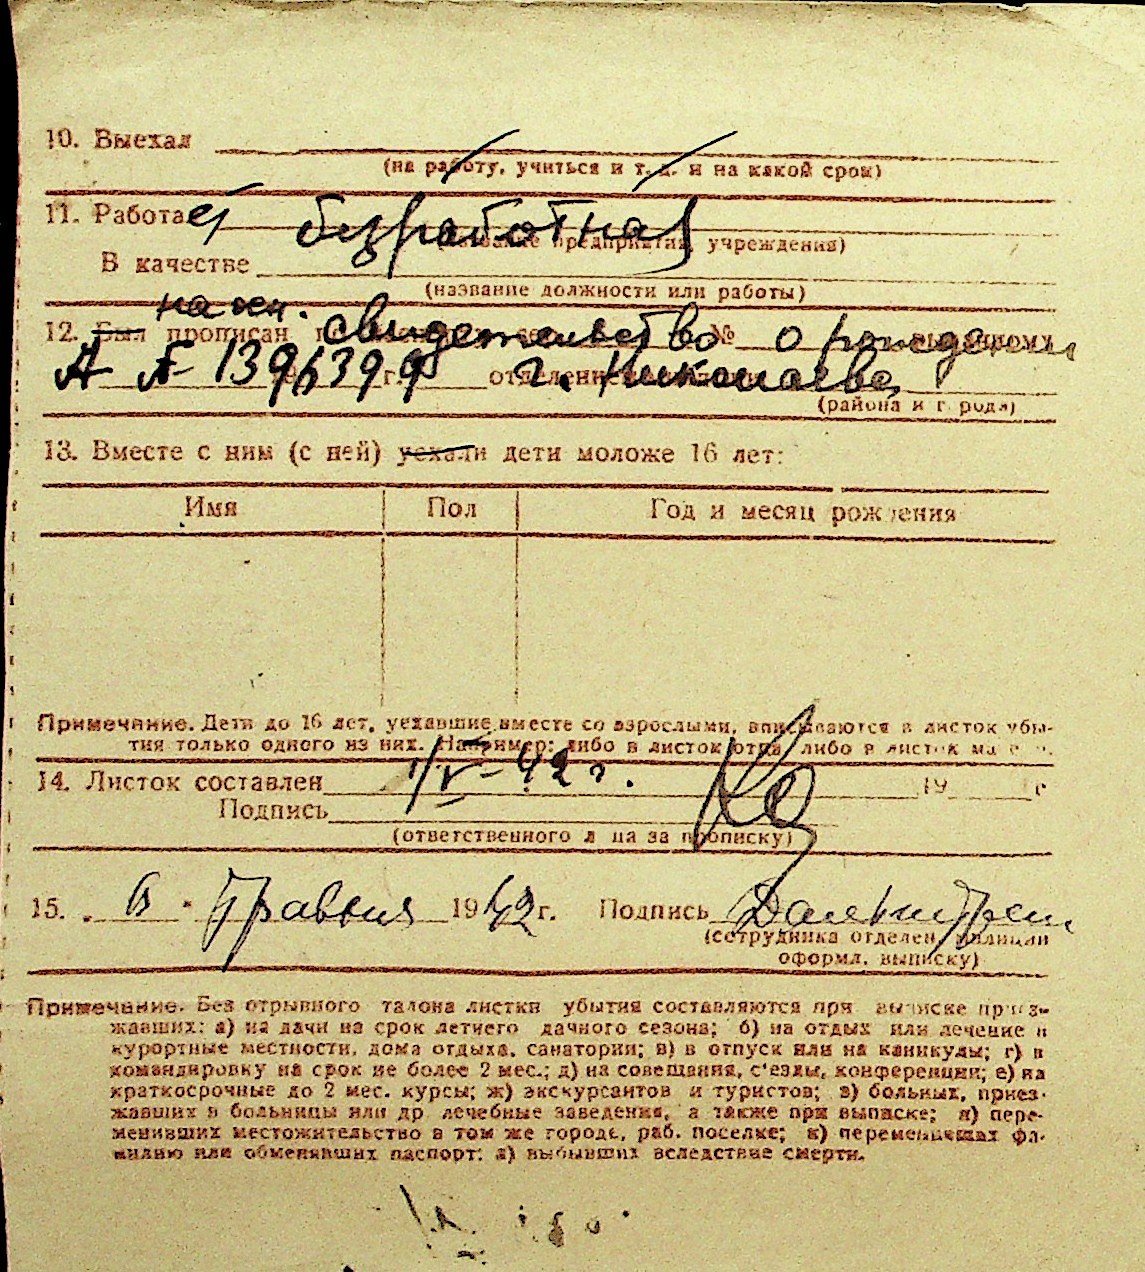 10. Выехал
(на работу, учиться и т. д. и на какой срок)
11. Работает безработная
учреждения)
В качестве
(название должности или работы)
на осн.
12. Был прописан свидетельство № о рождении
А А 1396399 г. отделение г. Николаева
(района и г рода)
13. Вместе с ним (с ней) уехали дети моложе 16 лет:
Имя Пол Год и месяц рождения
Примечание. Дети до 16 лет, уехавшие вместе со взрослыми, вписываются в листок убы-
тия только одного из них. Например: либо в листок отца, либо в листок
14. Листок составлен 1/V-42 г. 19 г
Подпись
(ответственного л ца за прописку)
15. 6 Травня 1942 г. Подпись
(сотрудника отделен. милиции
оформл. выписку)
Примечание. Без отрывного талона листки убытия составляются при выписке приез-
жавших: а) на дачи на срок летнего дачного сезона; б) на отдых или лечение в
курортные местности, дома отдыха, санатории; в) в отпуск или на каникулы; г) в
командировку на срок не более 2 мес.; д) на совещания, с'езды, конференции; е) на
краткосрочные до 2 мес. курсы; ж) экскурсантов и туристов; з) больных, приез-
жавших в больницы или др лечебные заведения, а также при выписке; и) пере-
менивших местожительство в том же городе, раб. поселке; к) переменивших фа-
милию или обменявших паспорт; л) выбывших вследствие смерти.